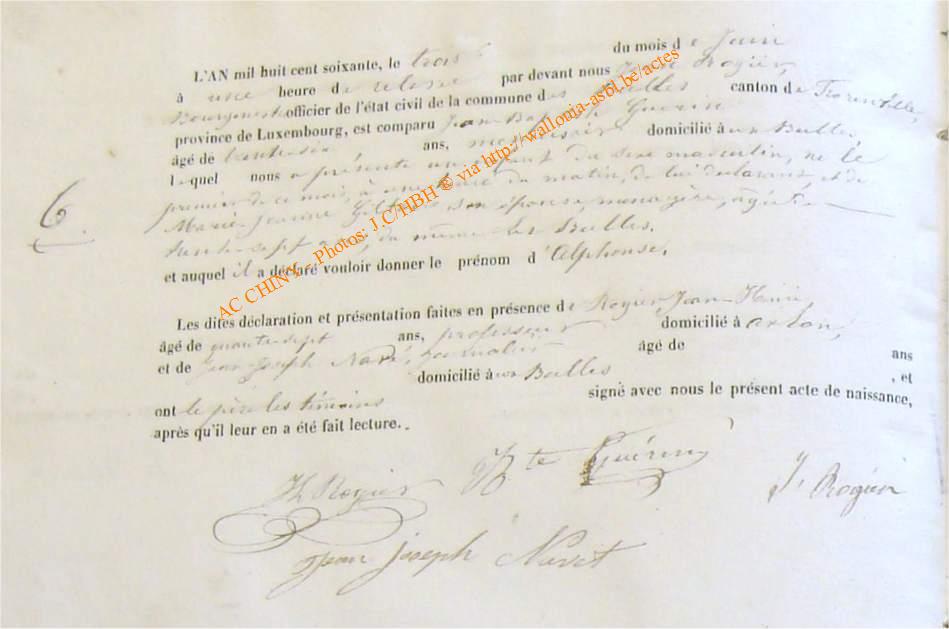 L'AN mil huit cent soixante, le trois du mois de Juin
à une heure de relevée par devant nous Rogier,
Bourgmestre officier de l'état civil de la commune des Bulles canton de Florenville,
province de Luxembourg, est comparu Jean Bapte Guérin
âgé de trente-six ans, domicilié aux Bulles,
lequel nous a présenté un enfant du sexe masculin, né le
premier de ce mois, à une heure du matin, de lui déclarant et de
Marie Jeanne son épouse, ménagère, âgée de
trente-sept ans, du même les Bulles.
et auquel il a déclaré vouloir donner le prénom d'Alphonse.
6.
Les dites déclaration et présentation faites en présence de Rogier Jean-Henri,
âgé de quarante-sept ans, professeur domicilié à arlon,
et de Jean Joseph journalier âgé de ans
domicilié aux Bulles , et
ont le père les témoins signé avec nous le présent acte de naissance,
après qu'il leur en a été fait lecture.
H Rogier J Bte Guérin J. Rogier
Jean joseph
AC CHINY - Photos: J.C/HBH © via http://wallonia-asbl.be/actes